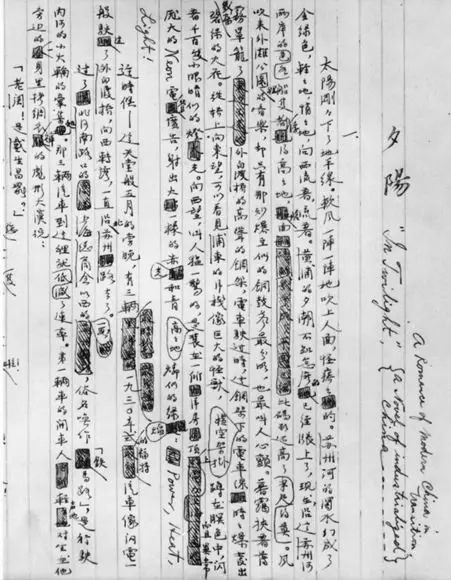 夕陽
"In Twilight"
A Romance of Modern China in Transition,
(a Novel of industrialized China)
一
太陽剛剛下了地平線。軟風一陣一陣地吹上人面,怪癢癢的。蘇州河的濁水幻成了
金綠色,輕輕地,悄悄地,向西流着流着。黃浦的夕潮不知怎的已經漲上了,現在沿這蘇州河
兩岸的各色船隻都浮得高高地,艙面比碼頭還高了約莫半尺。風
吹來外灘公園的音樂,卻只有那炒爆豆似的銅鼓聲最分明,也最叫人心顫。暮靄挾着薄
霧籠罩了外白渡橋的高聳的鋼架,電車駛過時,這鋼架下橫空架掛的電車線時時爆發出
碧綠的火花。從橋上向東望,可以看見浦東的洋棧像巨大的怪獸,蹲在暝色中,閃
着千百隻小眼睛似的燈火。向西望,叫人猛一驚的,是高高地裝在一所洋房頂上而且異常
龐大的 Neon 電管廣告,射出火一樣的赤光和青燐似的綠焰:Power, Heat,
Light!
這時候——這天堂般五月的傍晚,有三輛一九三〇年式的汽車像閃電一
般駛過了外白渡橋,向西轉彎,一直沿北蘇州路去了。
過了北河南路口的上海總商會以西的一段,俗名喚作「鐵馬路」,是行駛
內河的小火輪的彙集處。那三輛汽車到這裡就減低了速率。第一輛車的開車人輕輕地對坐在他
旁邊的穿一身黑拷綢衣褲的彪形大漢說:
「老關!是戴生昌罷?」